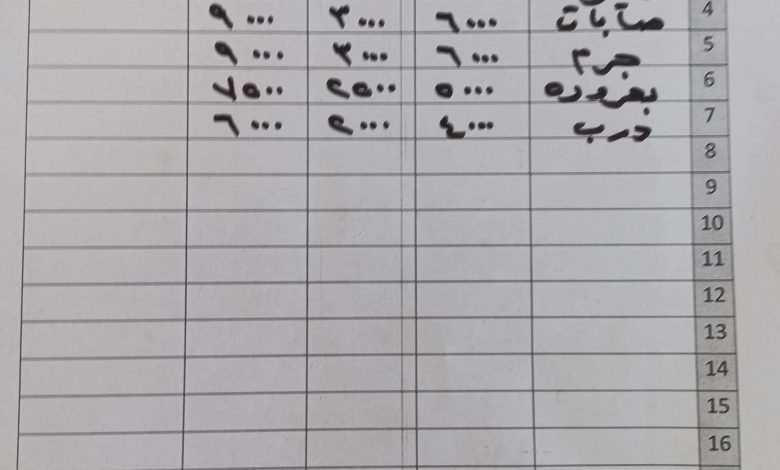 4 صابات ٦٠٠٠ ٣٠٠٠ ٩٠٠٠
5 جرم ٦٠٠٠ ٣٠٠٠ ٩٠٠٠
6 ٥٠٠٠ ٢٥٠٠ ٧٥٠٠
7 درب ٤٠٠٠ ٢٠٠٠ ٦٠٠٠
8
9
10
11
12
13
14
15
16